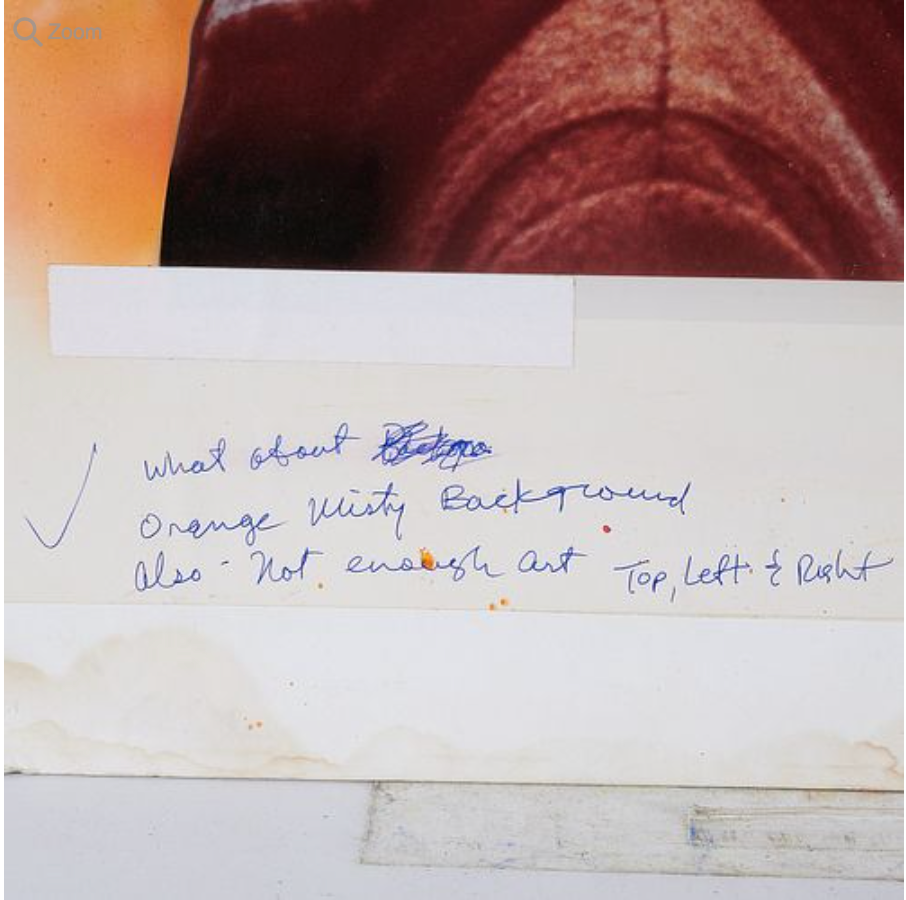 Zoom
What about
Orange Misty Background
Also - Not enough art Top, Left & Right